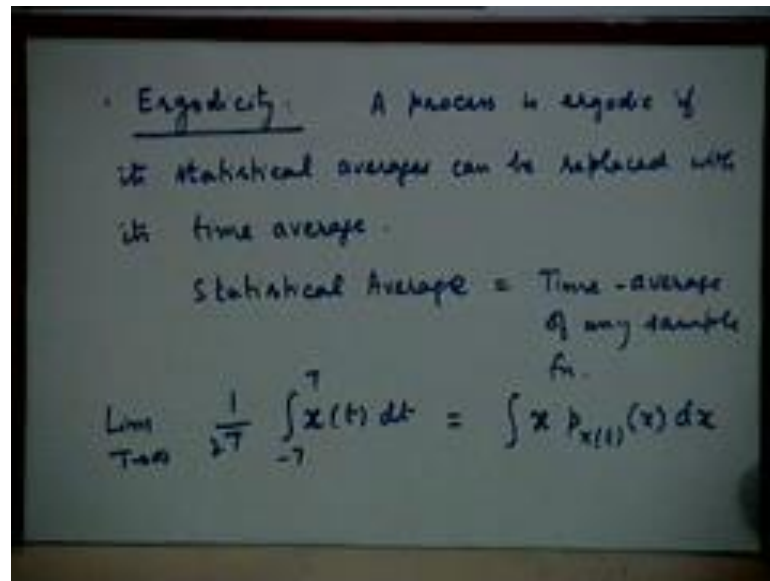 • Ergodicity. A process is ergodic if
its statistical averages can be replaced with
its time average.
Statistical Average = Time-average
of any sample
fn.
Lim T→∞ 1/2T ∫_{-T}^{T} x(t) dt = ∫ x p_{x(t)}(x) dx